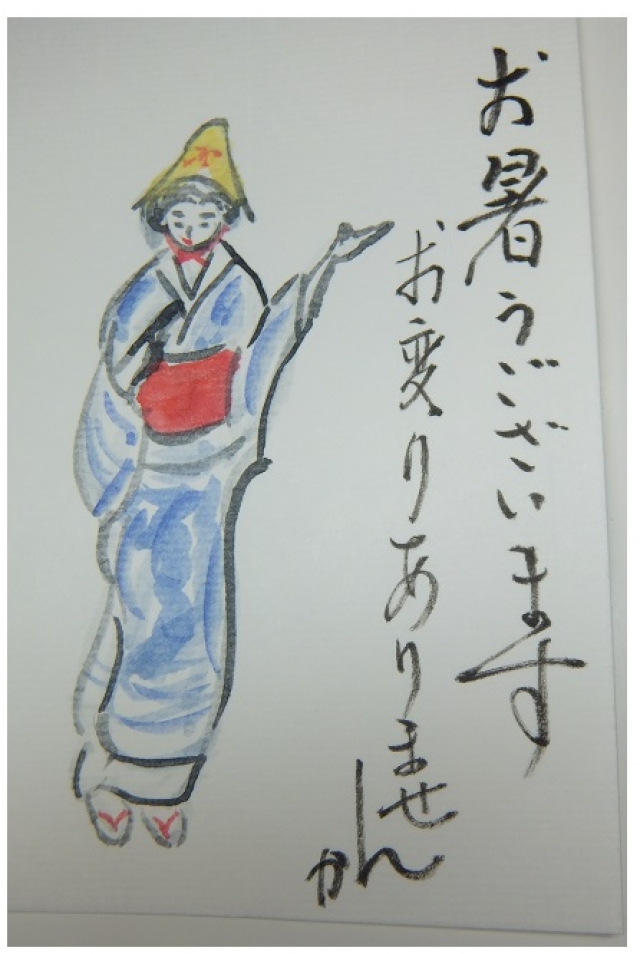 お暑うございます
お変りありませんか